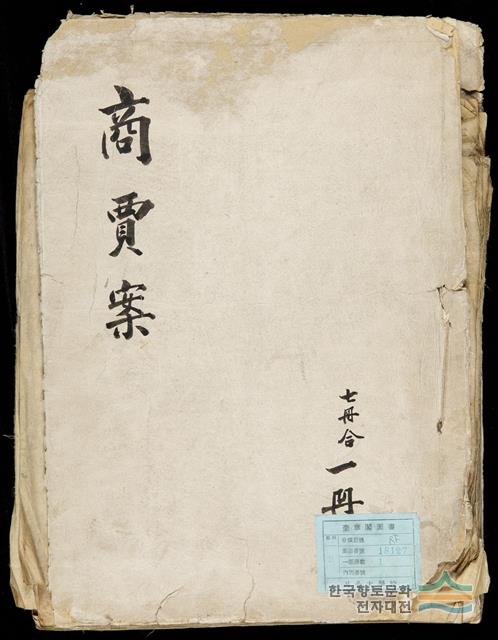 商賈案
七冊合一冊
奎章閣圖書
18187
1
한국향토문화
전자대전